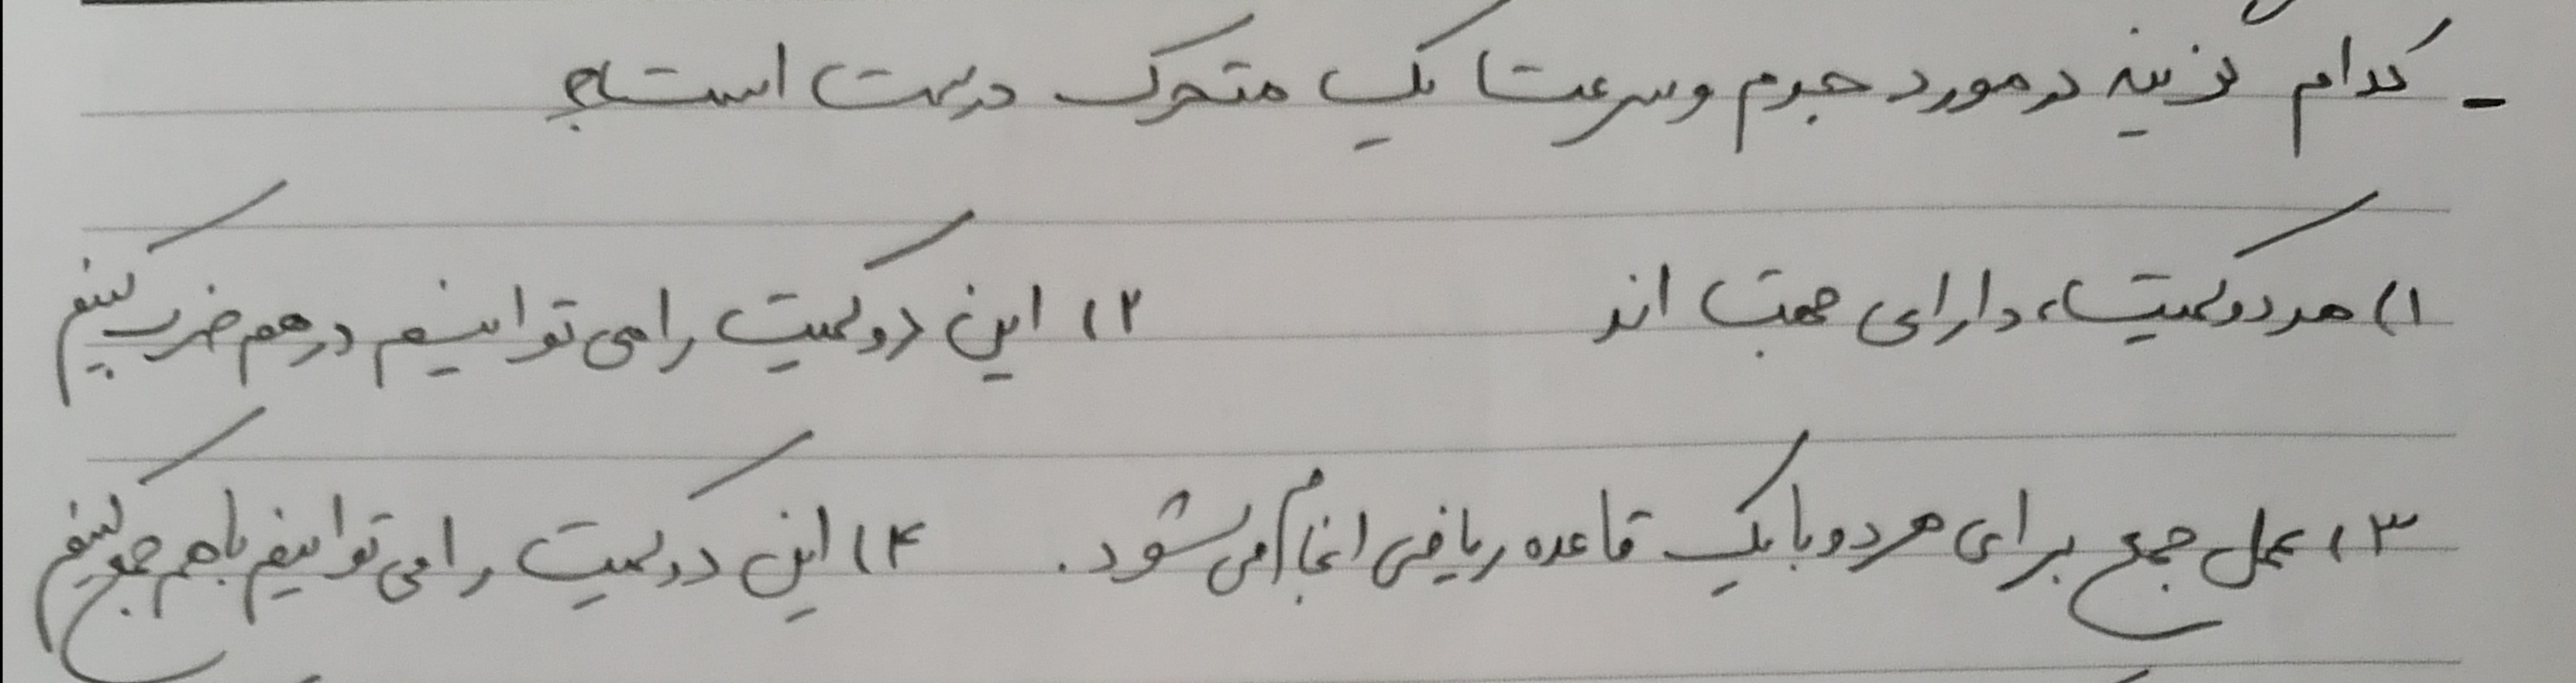 - کدام گزینه در مورد جرم و سرعت یک متحرک درست است؟
۱) هر دو کمیت، دارای جهت اند ۲) این دو کمیت را می توانیم در هم ضرب کنیم
۳) عمل جمع برای هر دو با یک قاعده ریاضی انجام می شود. ۴) این دو کمیت را می توانیم با هم جمع کنیم